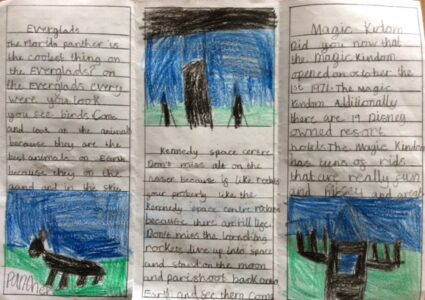 Everglads
the florida panther is
the coolest thing on
the Everglads? on
the Everglads every
were you look
you see birds Come
and look at the animals
because they are the
best animals on Earth
because they on the
sand and in the sky
Panther
Kennedy space centre
Don't miss out on the
naser because if like
your properly like the
Kennedy space centre
because there are
Don't miss the launching
rockets live up into space
and stand on the moon
and parishoot back onto
Earth and see them come
Magic Kidom
Did you now that
the Magic Kindom
opened on october the
1st 1971. The magic
Kindom Additionally
there are 19 Disney
owned resort
hotels The Magic Kindom
has tens of rids
that are really fun
and